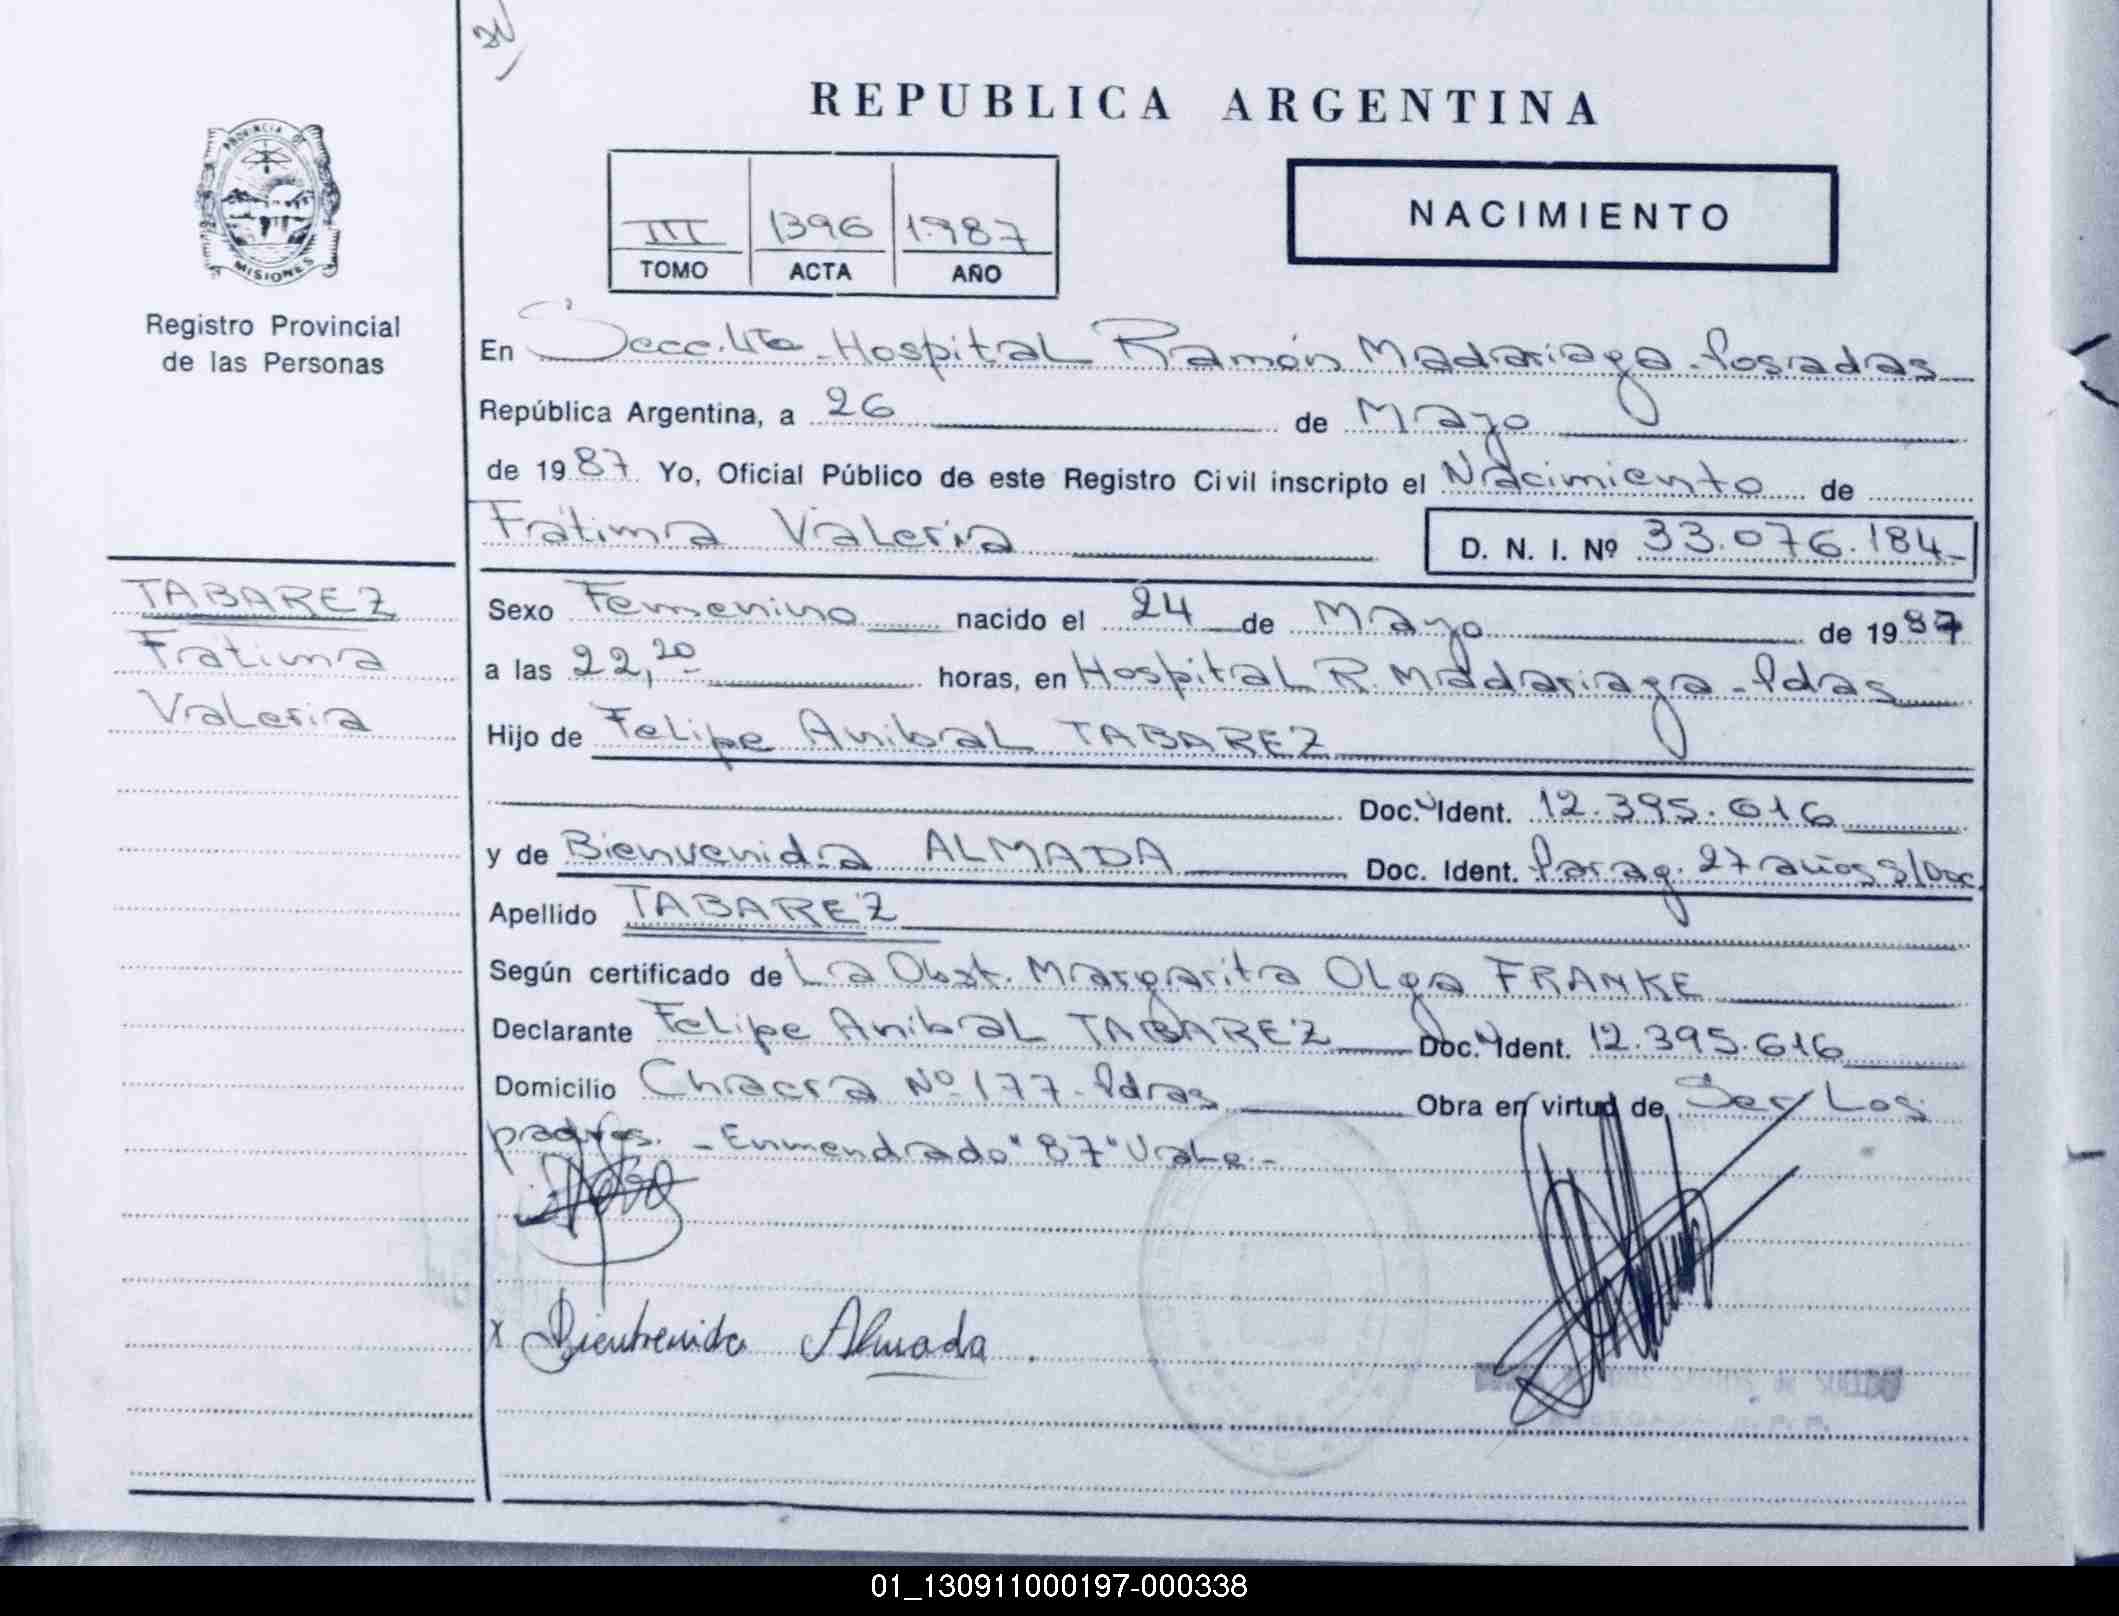 REPUBLICA ARGENTINA
PROVINCIA DE
MISIONES
Registro Provincial
de las Personas
III 1396 1987
TOMO ACTA AÑO
NACIMIENTO
En Secc. 4ta - Hospital Ramón Madariaga - Posadas
República Argentina, a 26 de Mayo
de 1987 Yo, Oficial Público de este Registro Civil inscripto el Nacimiento de
Fátima Valeria D. N. I. Nº 33.076.184-
TABAREZ
Fatima
Valeria
Sexo Femenino nacido el 24 de Mayo de 1987
a las 22,20 horas, en Hospital R. Madariaga - Pdas
Hijo de Felipe Anibal TABAREZ
Doc. Ident. 12.395.616
y de Bienvenida ALMADA Doc. Ident. Parag. 27 años S/Doc.
Apellido TABAREZ
Según certificado de La Obst. Margarita Olga FRANKE
Declarante Felipe Anibal TABAREZ Doc. Ident. 12.395.616
Domicilio Chacra Nº 177 - Pdas Obra en virtud de Ser Los
padres. - Enmendrado "87" Vale -
x Bienbenida Almada
01_130911000197-000338